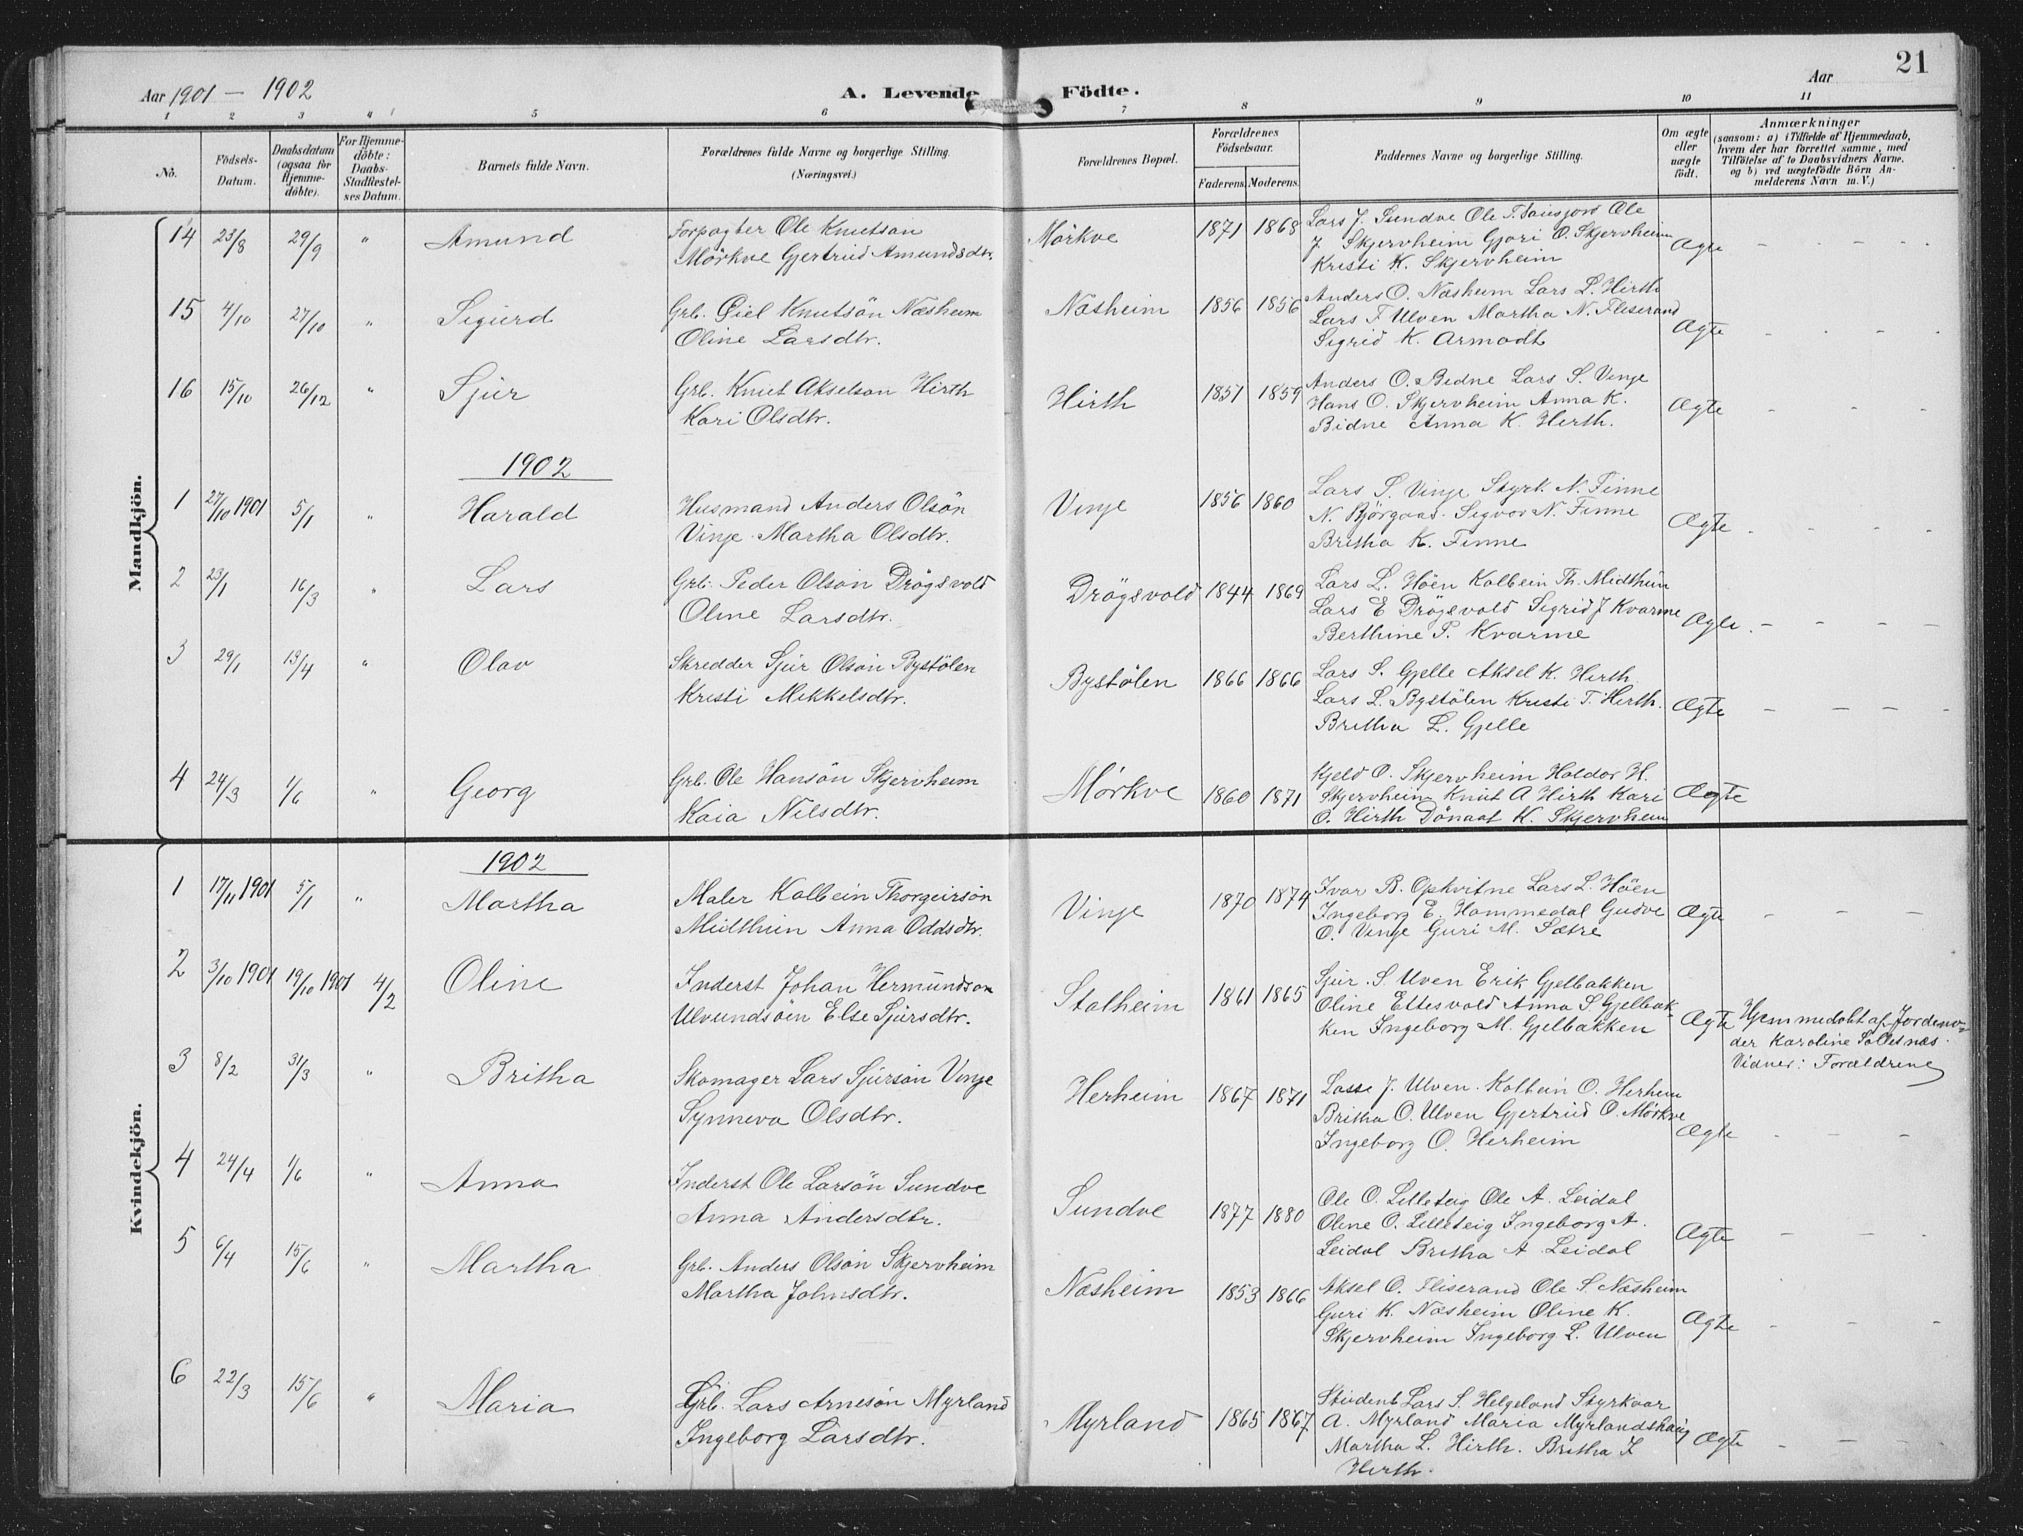 Aar 1901 – 1902
A. Levende Födte.
Aar
21
1 2 3 4 5 6 7 8 9 10 11
No.
Födsels-Datum.
Daabsdatum (ogsaa for Hjemme-döbte).
For Hjemme-döbte: Daabs-Stadfæstel-ses Datum.
Barnets fulde Navn.
Forældrenes fulde Navne og borgerlige Stilling.
(Næringsvei.)
Forældrenes Bopæl.
Forældrenes Födselsaar.
Faderens. Moderens.
Faddernes Navne og borgerlige Stilling.
Om ægte eller uægte födt.
Anmærkninger
(saasom: a) i Tilfælde af Hjemmedaab,
hvem der har forrettet samme, med
Tilföielse af to Daabsvidners Navne.
og b) ved uægtefödte Börn An-
melderens Navn m. V.)
Mandkjön.
14 23/8 29/9 " Amund
Forpagter Ole Knutson
Mörkve Gjertrud Amundsdtr.
Mörkve 1871 1868
Lars J. Sundve Ole T. Ole
J. Skjervheim Gjori O. Skjervheim
Kristi K. Skjervheim
Ægte
15 4/10 27/10 " Sigurd
Grb. Eiel Knutsön Næsheim
Oline Larsdtr.
Næsheim 1856 1856
Anders O. Næsheim Lars L. Hirth
Lars T. Ulven Martha N. Fliserand
Sigrid K. Armodt
Ægte
16 15/10 26/12 " Sjur
Grb. Knut Akselson Hirth
Kari Olsdtr.
Hirth 1851 1859
Anders O. Bidne Lars S. Vinje
Hans O. Skjervheim Anna K.
Bidne Anna K. Hirth.
Ægte
1902
1 27/10 1901 5/1 " Harald
Husmand Anders Olsön
Vinje. Martha Olsdtr.
Vinje 1856 1860
Lars S. Vinje Styrk. N. Finne
N. Björgaas. Sigvor N. Finne
Britha K. Finne
Ægte
2 23/1 16/3 " Lars
Grb. Peder Olson Drögsvold
Oline Larsdtr.
Drögsvold 1844 1869
Lars L. Höen Kolbein Th. Midthun
Lars E Drögsvold Sigrid J Kvarme
Berthine P. Kvarme
Ægte
3 29/1 13/4 " Olav
Skredder Sjur Olson Bystölen
Kristi Mikkelsdtr.
Bystölen 1866 1866
Lars S. Gjelle Aksel K. Hirth
Lars L. Bystölen Kristi T. Hirth.
Britha L. Gjelle
Ægte
4 24/3 1/6 " Georg
Grb. Ole Hansön Skjervheim
Kaia Nilsdtr.
Mörkve 1860 1871
Kjeld O. Skjervheim Haldor H.
Skjervheim Knut A Hirth Kari
O. Hirth Dönaat K. Skjervheim
Ægte
Kvindekjön.
1902
1 17/11 1901 5/1 " Martha
Maler Kolbein Thorgeirsön
Midthun Anna Oddsdtr.
Vinje 1870 1874
Ivar B. Opkvitne Lars L. Höen
Ingeborg E. Hommedal Gudve
O. Vinje Guri M. Sætre
Ægte
2 3/10 1901 19/10 1901 4/2 Oline
Inderst Johan Hermundson
Ulvundsöien Else Sjursdtr.
Stalheim 1861 1865
Sjur. S. Uven Erik Gjelbakken
Oline Ettesvold Anna S Gjelbak-
ken Ingeborg M. Gjelbakken
Ægte
Hjemmedöbt af Jordemo-
der Karoline Saltesnæs.
Vidner: Forældrene
3 8/2 31/3 " Britha
Skomager Lars Sjursön Vinje
Synneva Olsdtr.
Herheim 1867 1871
Lasse J. Ulven. Kolbein O. Herheim
Britha O. Ulven Gjertrud O. Mörkve
Ingeborg O. Herheim
Ægte
4 24/4 1/6 " Anna
Inderst Ole Larsön Sundve
Anna Andersdtr.
Sundve 1877 1880
Ole O. Lilleteig Ole A. Leidal
Oline O. Lilleteig Ingeborg A.
Leidal Britha A. Leidal
Ægte
5 6/4 15/6 " Martha
Grb. Anders Olson Skjervheim
Martha Johnsdtr.
Næsheim 1853 1866
Aksel O. Fliserand Ole S. Næsheim
Guri K. Næsheim Oline K.
Skjervheim Ingeborg L. Ulven
Ægte
6 22/3 15/6 " Maria
Grb. Lars Arnesön Myrland
Ingeborg Larsdtr.
Myrland 1865 1867
Student Lars S. Helgeland Styrkvar
A. Myrland Maria Myrlandshaug
Martha L. Hirth. Britha I
Hirth.
Ægte